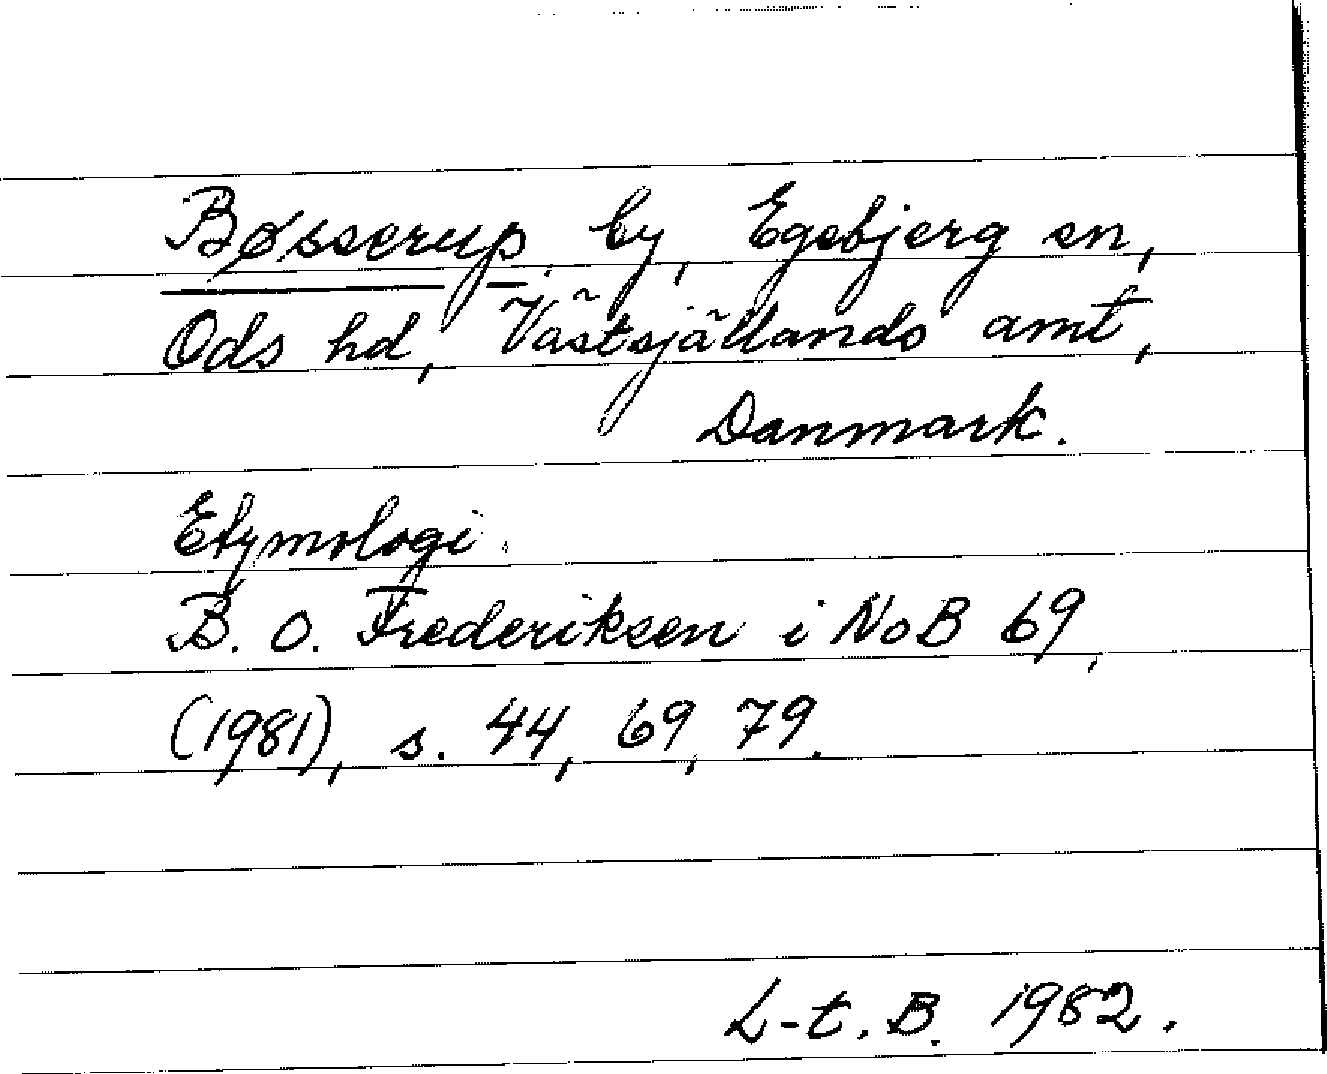 Bøsserup, by, Egebjerg sn,
Ods hd, Västsjällands amt,
Danmark.
Etymologi.
B. O. Frederiksen i NoB 69,
(1981), s. 44, 69, 79.
L-t. B. 1982.